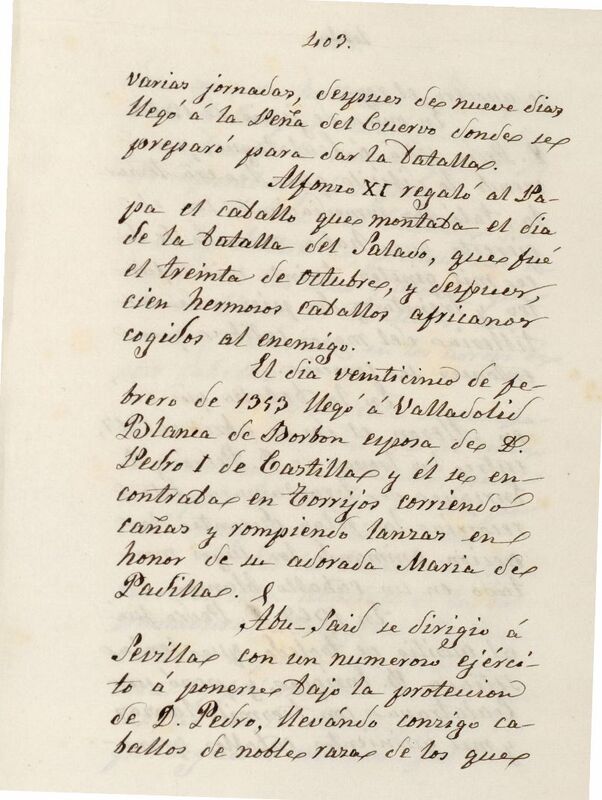 403.
varias jornadas, despues de nueve dias
llegó á la Peña del Cuervo donde se
preparó para dar la batalla.
Alfonzo XI regaló al Pa-
pa el caballo que montaba el dia
de la batalla del Salado, que fué
el treinta de octubre, y despues,
cien hermosos caballos africanos
cogidos al enemigo.
El dia veinticinco de fe-
brero de 1353 llegó á Valladolid
Blanca de Borbon esposa de D.
Pedro I de Castilla y él se en-
contraba en Torrijos corriendo
cañas y rompiendo lanzas en
honor de su adorada Maria de
Padilla.
Abu-Said se dirigio á
Sevilla con un numeroso ejérci-
to á ponerse bajo la protecion
de D. Pedro, llevándo consigo ca-
ballos de noble raza de los que